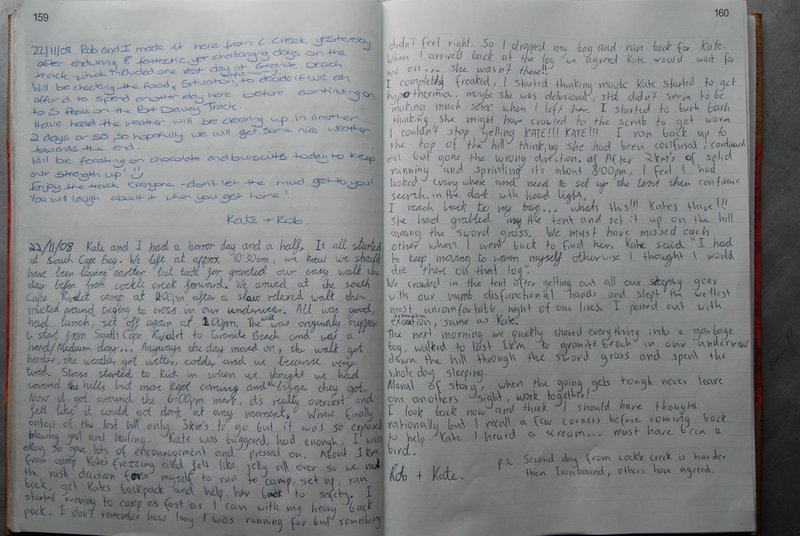 159
22/11/08 Rob and I made it here from C. Creek yesterday
after enduring 8 fantastic, yet challenging days on the
track, which included one rest day at Granite beach
Will be checking the food situation, to decide if we can
afford to spend another day here before continuing on
to S. Peak on the Port Davey Track.
Have heard the weather will be clearing up in another
2 days or so, so hopefully we will get some nice weather
towards the end.
Will be feasting on chocolate and buiscuits today to keep
our strength up!
Enjoy the track everyone - don't let the mud get to you!
You will laugh about it when you get home!
Kate + Rob.
22/11/08 Kate and I had a horror day and a half. It all started
at South Cape Bay. We left at approx 10:30am, we knew we should
have been leaving earlier but took for granted our easy walk the
day before from cockle creek forward. We arrived at the south
Cape Rivulet camp at 12:00pm after a slow relaxed walk then
mucked around trying to cross in our underwear. All was good,
had lunch, set off again at 1:00pm. The walk was originally suppose
to start from South Cape Rivulet to Granite Beach and was a
hard/Medium day... Anyways the day moved on, the walk got
harder, the weather got wetter, colder and we became very
tired. Stress started to kick in when we thought we had
covered the hills but more kept coming and the bigger they got.
Now it got around the 6:00pm mark, its really overcast and
felt like it could get dark at any moment. Where finally
ontop of the last hill only 3km's to go but it was so exposed
blowing gail and hailing. Kate was buggered, had enough, I was
okay so gave lots of encouragement and pressed on. About 1km
from camp Kate's frezzing and felt like jelly all over so we made
the rash decision for myself to run to camp, set up, run
back, get Kates backpack and help her back to safety. I
started running to camp as fast as I can with my heavy back
pack. I don't remember how long I was running for but something
160
didn't feel right. So I dropped my bag and ran back for Kate.
When I arrived back at the log we agreed Kate would wait for
me on... she wasn't there!!
I completely freaked, I started thinking maybe Kate started to get
hypothermia, maybe she was delusional, she didn't seem to be
making much sense when I left her. I started to bush bash
thinking she might have crawled to the scrub to get warm
I couldn't stop yelling KATE!!! KATE!!! I ran back up to
the top of the hill thinking she had been confused, continued
on but gone the wrong direction. After 2km's of solid
running and sprinting it's about 8:00pm, I feel I had
looked everywhere and need to set up the tent then continue
search in the dark with head light.
I reach back to my bag... whats this!!! Kates there!!!
she had grabbed my the tent and set it up on the hill
among the sword grass. We must have missed each
other when I went back to find her. Kate said "I had
to keep moving to warm myself otherwise I thought I would
die there on that log".
We crawled in the tent after getting out all our sleeping gear
with our numb disfunctional hands and slept the wettest
most uncomfortable night of our lives. I passed out with
exhaustion, same as Kate.
The next morning we quickly shoved everything into a garbage
bag, walked to last 1km to granite beach in our underwear
down the hill through the sword grass and spent the
whole day sleeping.
Moral of story, when the going gets tough never leave
one anothers sight, work together!
I look back now and think I should have thought
rationally but I recall a few corners before coming back
to help Kate I heard a scream... must have been a
bird.
Rob + Kate.
p.s. Second day from cockle creek is harder
then Ironbound, others have agreed.